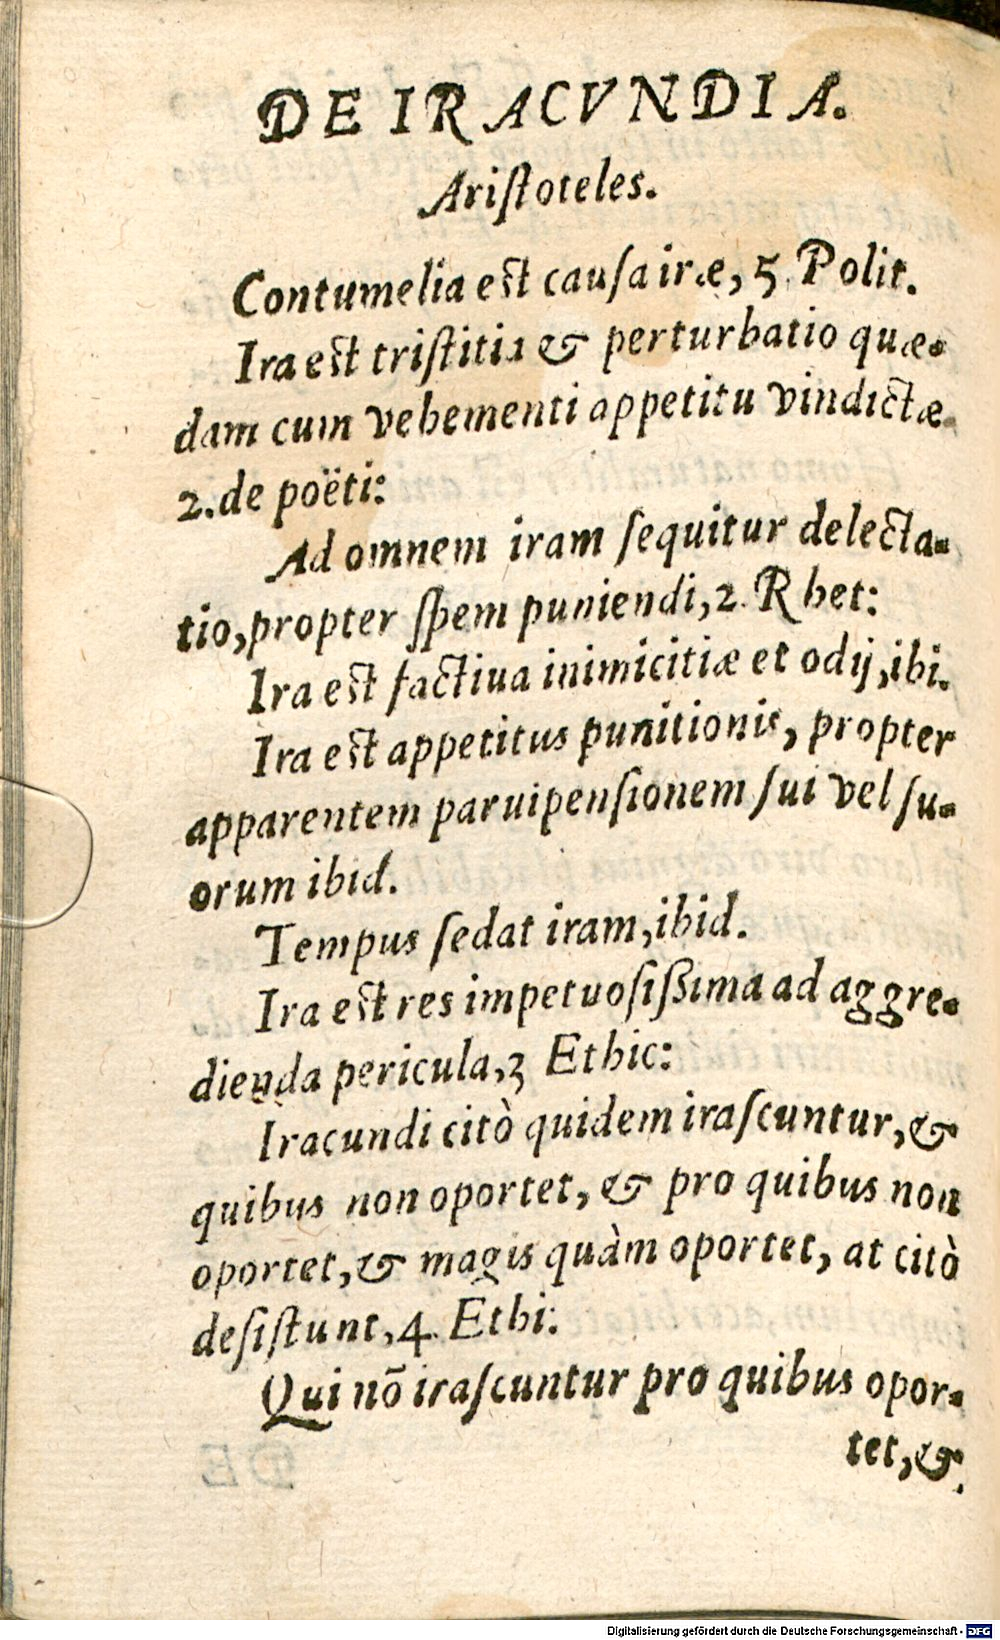 DE IRACVNDIA.
Aristoteles.
Contumelia est causa iræ, 5. Polit.
Ira est tristitia & perturbatio quæ-
dam cum vehementi appetitu vindictæ.
2. de poëti:
Ad omnem iram sequitur delecta-
tio, propter spem puniendi, 2. Rhet:
Ira est factiua inimicitiæ et odij, ibi.
Ira est appetitus punitionis, propter
apparentem paruipensionem sui vel su-
orum ibid.
Tempus sedat iram, ibid.
Ira est res impetuosißima ad aggre-
dienda pericula, 3 Ethic:
Iracundi citò quidem irascuntur, &
quibus non oportet, & pro quibus non
oportet, & magis quàm oportet, at citò
desistunt, 4. Ethi:
Qui nō irascuntur pro quibus opor-
tet, &
Digitalisierung gefördert durch die Deutsche Forschungsgemeinschaft - DFG